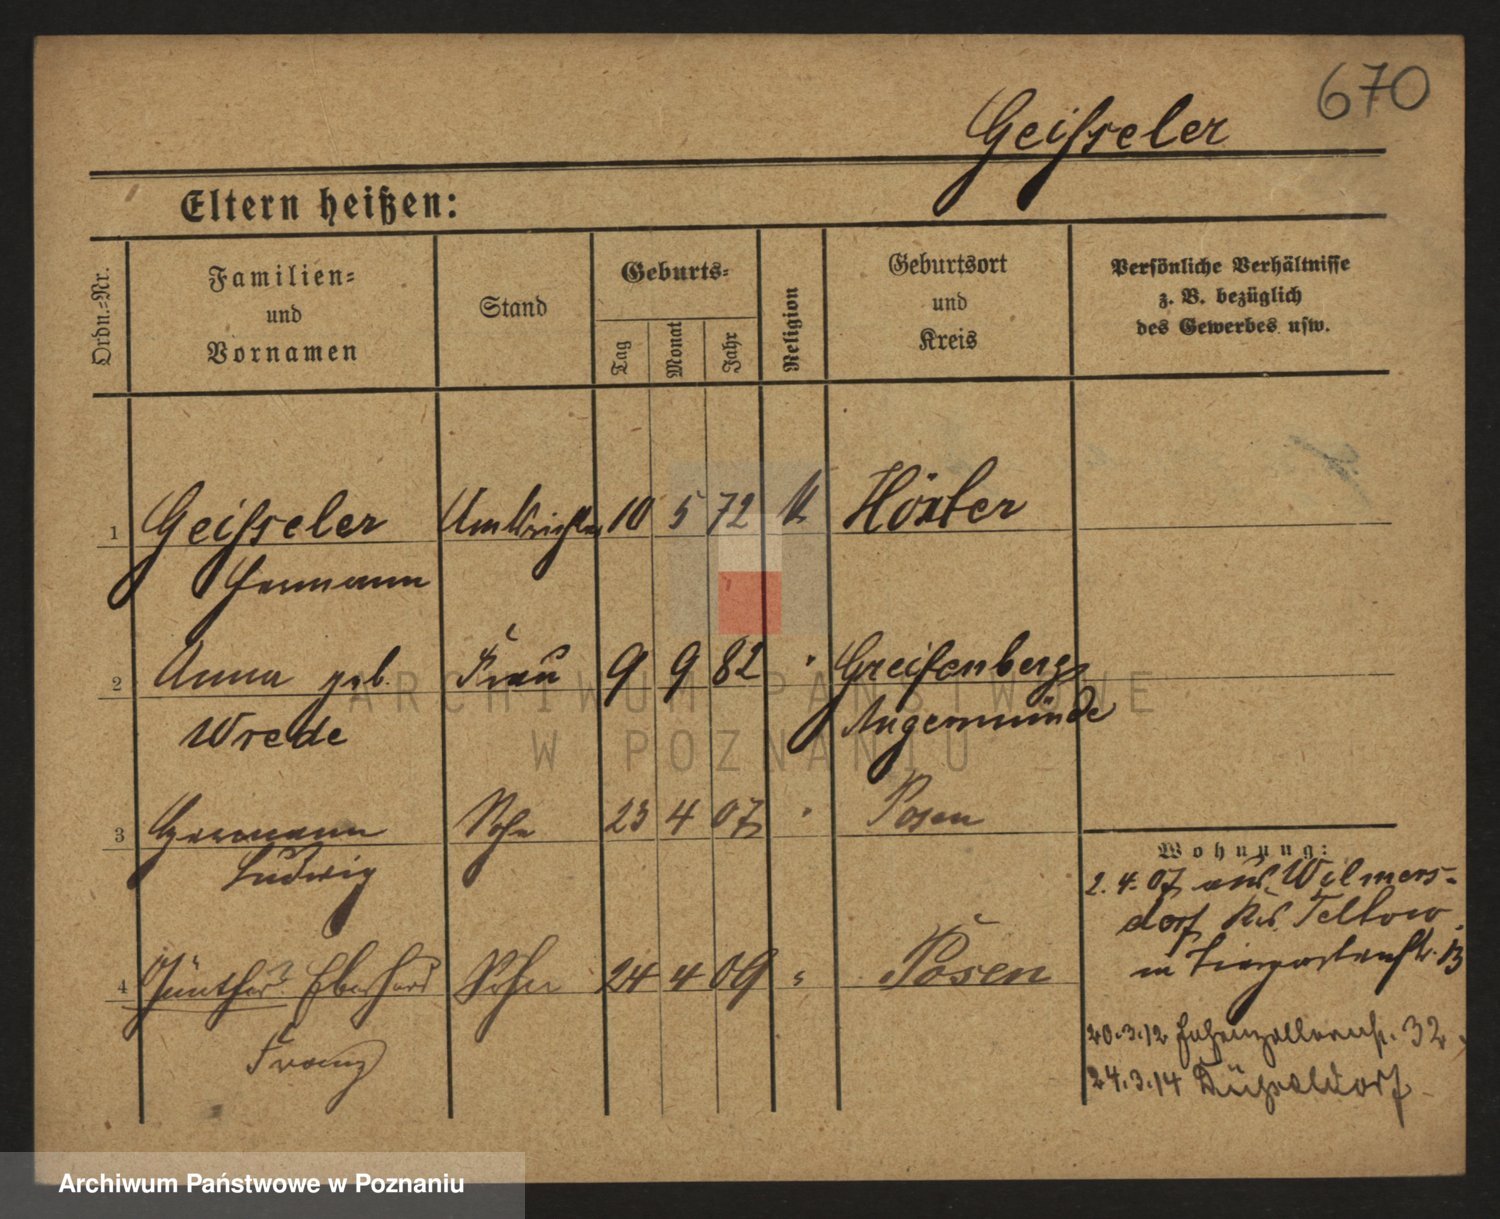 670
Geisseler
Eltern heißen:
Ordn.-Nr.
Familien-
und
Vornamen
Stand
Geburts-
Tag
Monat
Jahr
Religion
Geburtsort
und
Kreis
Persönliche Verhältnisse
z. B. bezüglich
des Gewerbes usw.
1 Geisseler 10 5 72 Höxter
Hermann
2 Anna geb. Frau 9 9 82 " Greifenberg
Wrede Angermünde
3 Hermann Sohn 23 4 07 " Posen
Ludwig
Wohnung:
2. 4. 07 aus Wilmers-
dorf Krs. Teltow
Tiergartenstr. 13
4 Günther Eberhard Sohn 24 4 09 " Posen
Franz
20.3.12 Hohenzollernstr. 32
24.3.14 Düsseldorf
ARCHIWUM PAŃSTWOWE
W POZNANIU
Archiwum Państwowe w Poznaniu